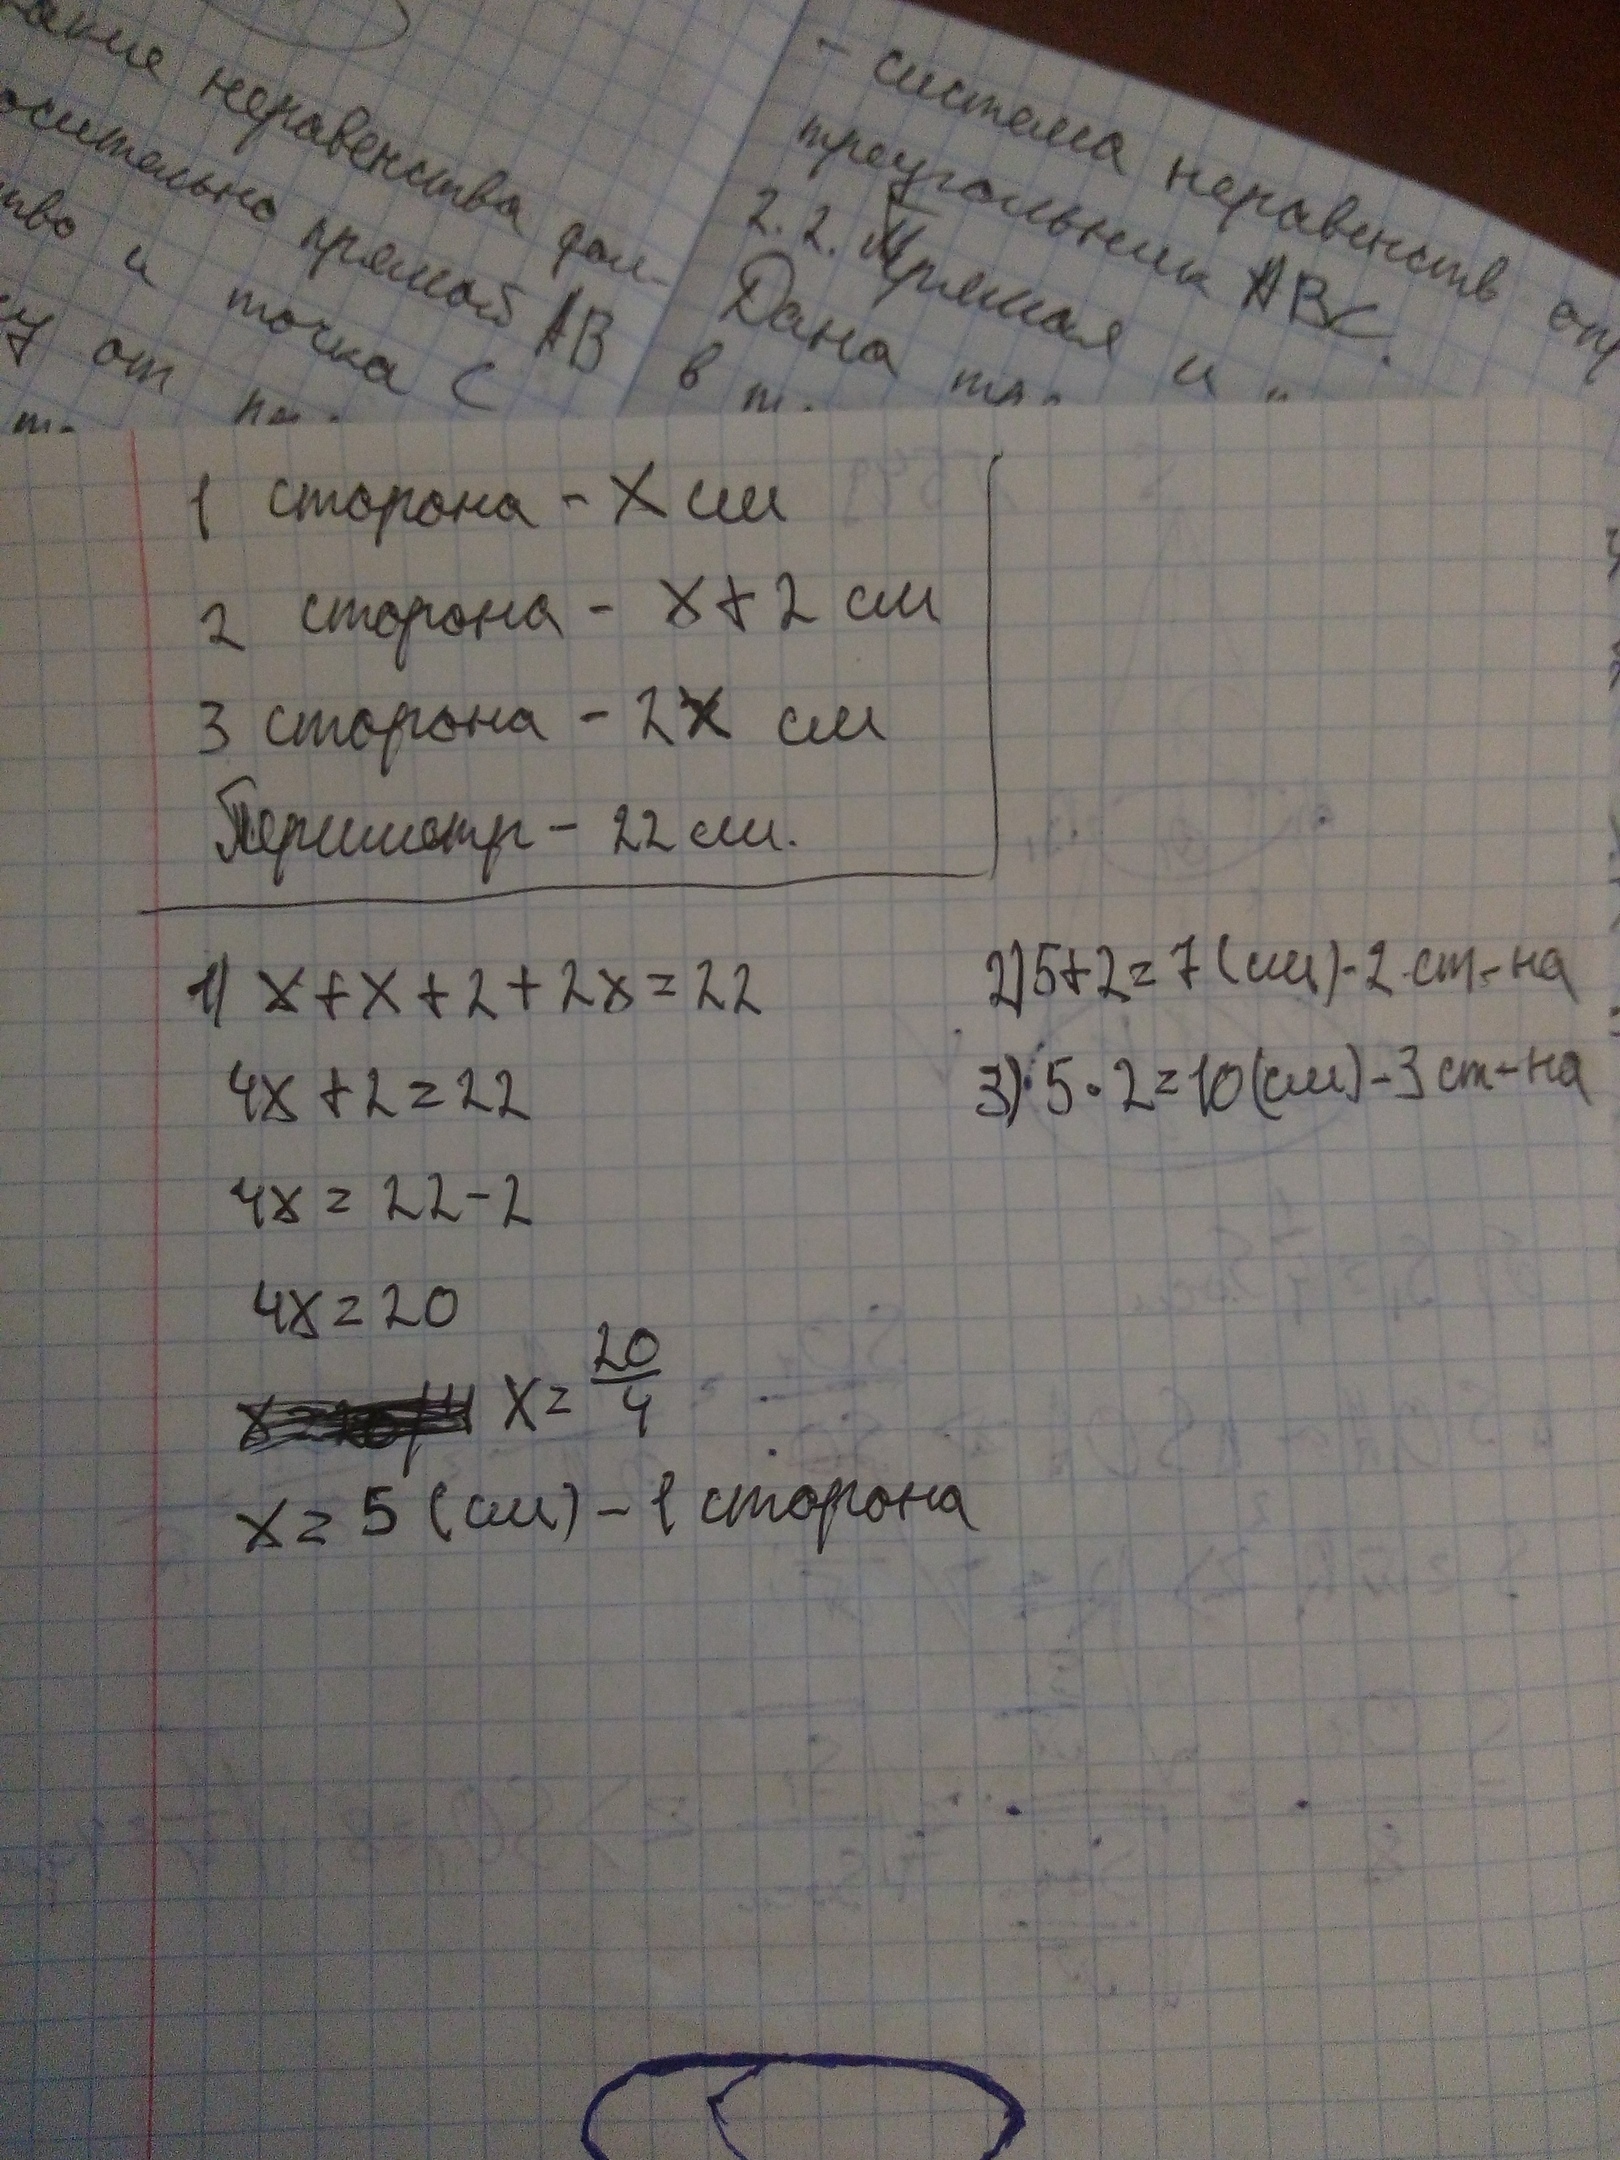 неравенства дол-
осительно прямой AB
тво и точка C
от
- система неравенств
треугольник ABC.
2.2. Прямая и
Дана
в т.
1 сторона - x см
2 сторона - x+2 см
3 сторона - 2x см
Периметр - 22 см.
1) x+x+2+2x=22
4x+2=22
4x=22-2
4x=20
x=20/4
x=5 (см) - 1 сторона
2) 5+2=7 (см) - 2 ст-на
3) 5·2=10 (см) - 3 ст-на